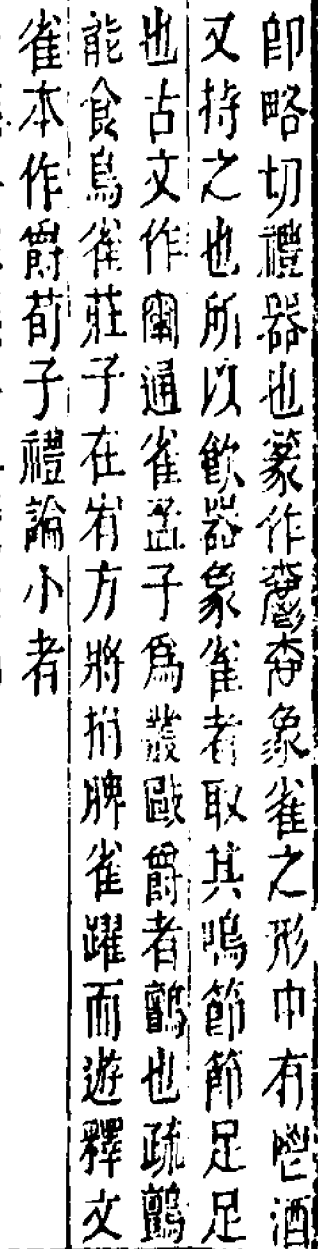 即略切禮器也篆作𩰥𡕰象雀之形中有鬯酒
又持之也所以飲器象雀者取其鳴節節足足
也古文作𤔲通雀孟子為叢敺爵者鸇也疏鸇
能食鳥雀莊子在宥方將拊脾雀躍而遊釋文
雀本作爵荀子禮論小者